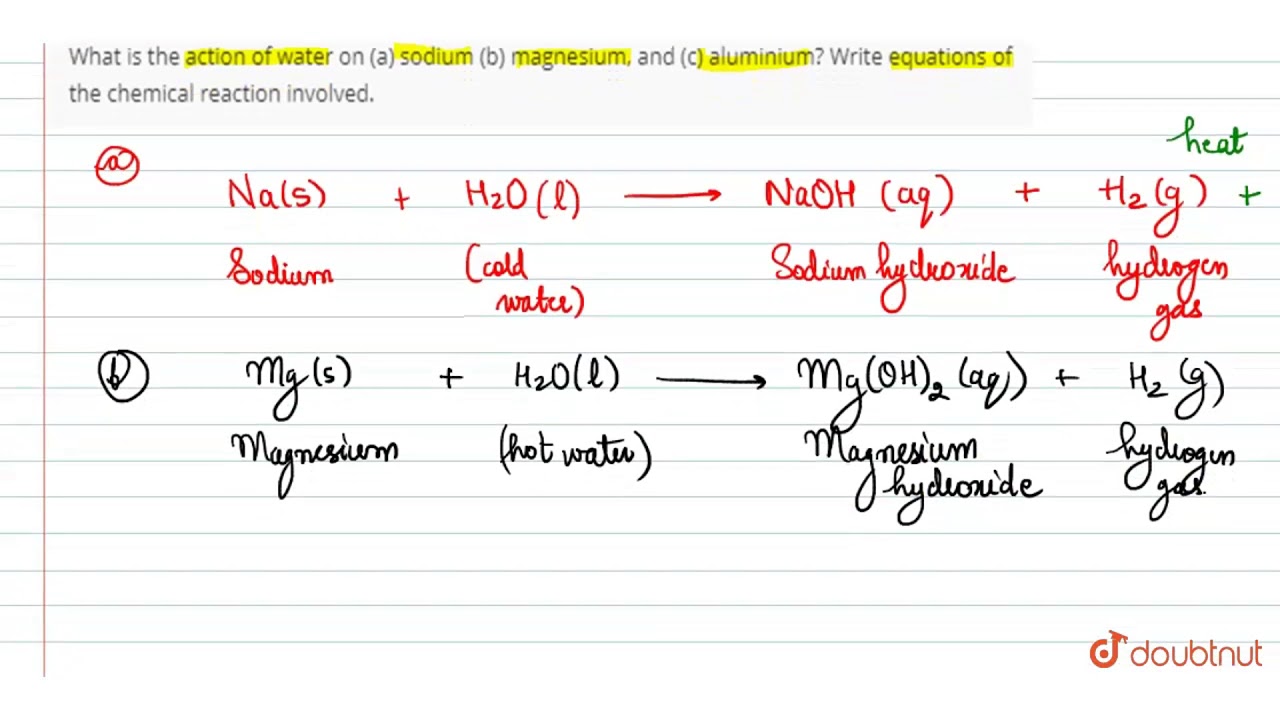 What is the action of water on (a) sodium (b) magnesium, and (c) aluminium? Write equations of
the chemical reaction involved.
heat
(a)
Na(s) + H2O(l) ⟶ NaOH (aq) + H2(g) +
Sodium (cold water) Sodium hydroxide hydrogen gas
(b) Mg(s) + H2O(l) ⟶ Mg(OH)2 (aq) + H2(g)
Magnesium (hot water) Magnesium hydroxide hydrogen gas.
doubtnut